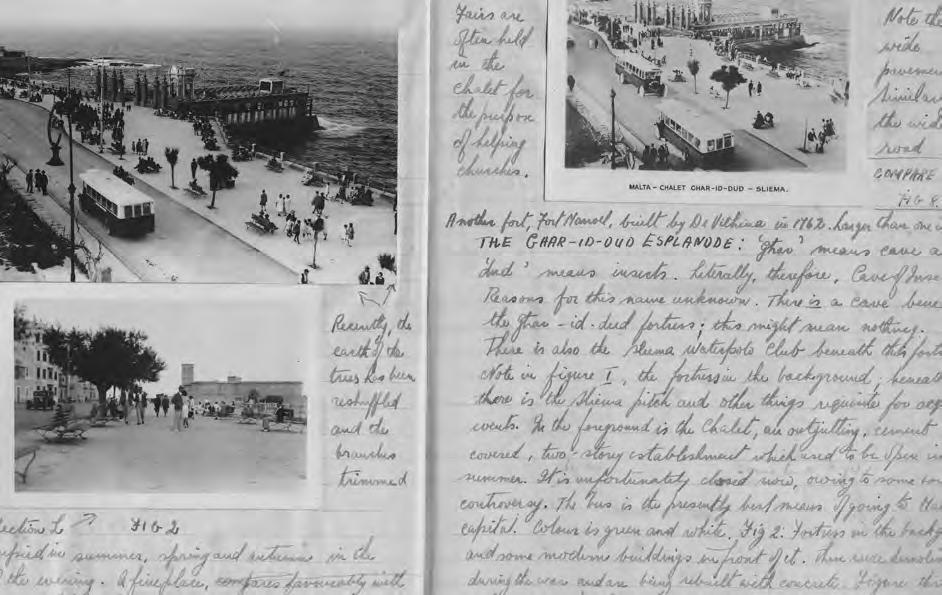 Recently, the
earth of the
trees has been
reshuffled
and the
branches
trimmed
section L FIG 2
in summer, spring and autumn in the
the evening. A fine place, compares favourably with
Fairs are
often held
in the
Chalet for
the purpose
of helping
churches.
MALTA - CHALET GHAR-ID-DUD - SLIEMA.
Note the
wide
pavement
similar
the wide
road
COMPARE
FIG 8
Another fort, Fort Manoel, built by De Vilhina in 1762. Larger than one
THE GHAR-ID-DUD ESPLANADE: 'Ghar' means cave a
'Dud' means insects. Literally, therefore, Cave of Inse
Reasons for this name unknown. There is a cave bene
the ghar-id-dud fortress; this might mean nothing.
There is also the Sliema Waterpolo Club beneath this fort
Note in figure I, the fortress in the background; beneath
there is the Sliema pitch and other things requisite for
events. In the foreground is the Chalet, an outjutting, cement
covered, two-story establishment which used to be open in
summer. It is unfortunately closed now, owing to some
controversy. The bus is the presently best means of going to the
capital. Colour is green and white. Fig 2: Fortress in the backg
and some modern buildings in front of it. These were demolish
during the war and are being rebuilt with concrete. Figure thr